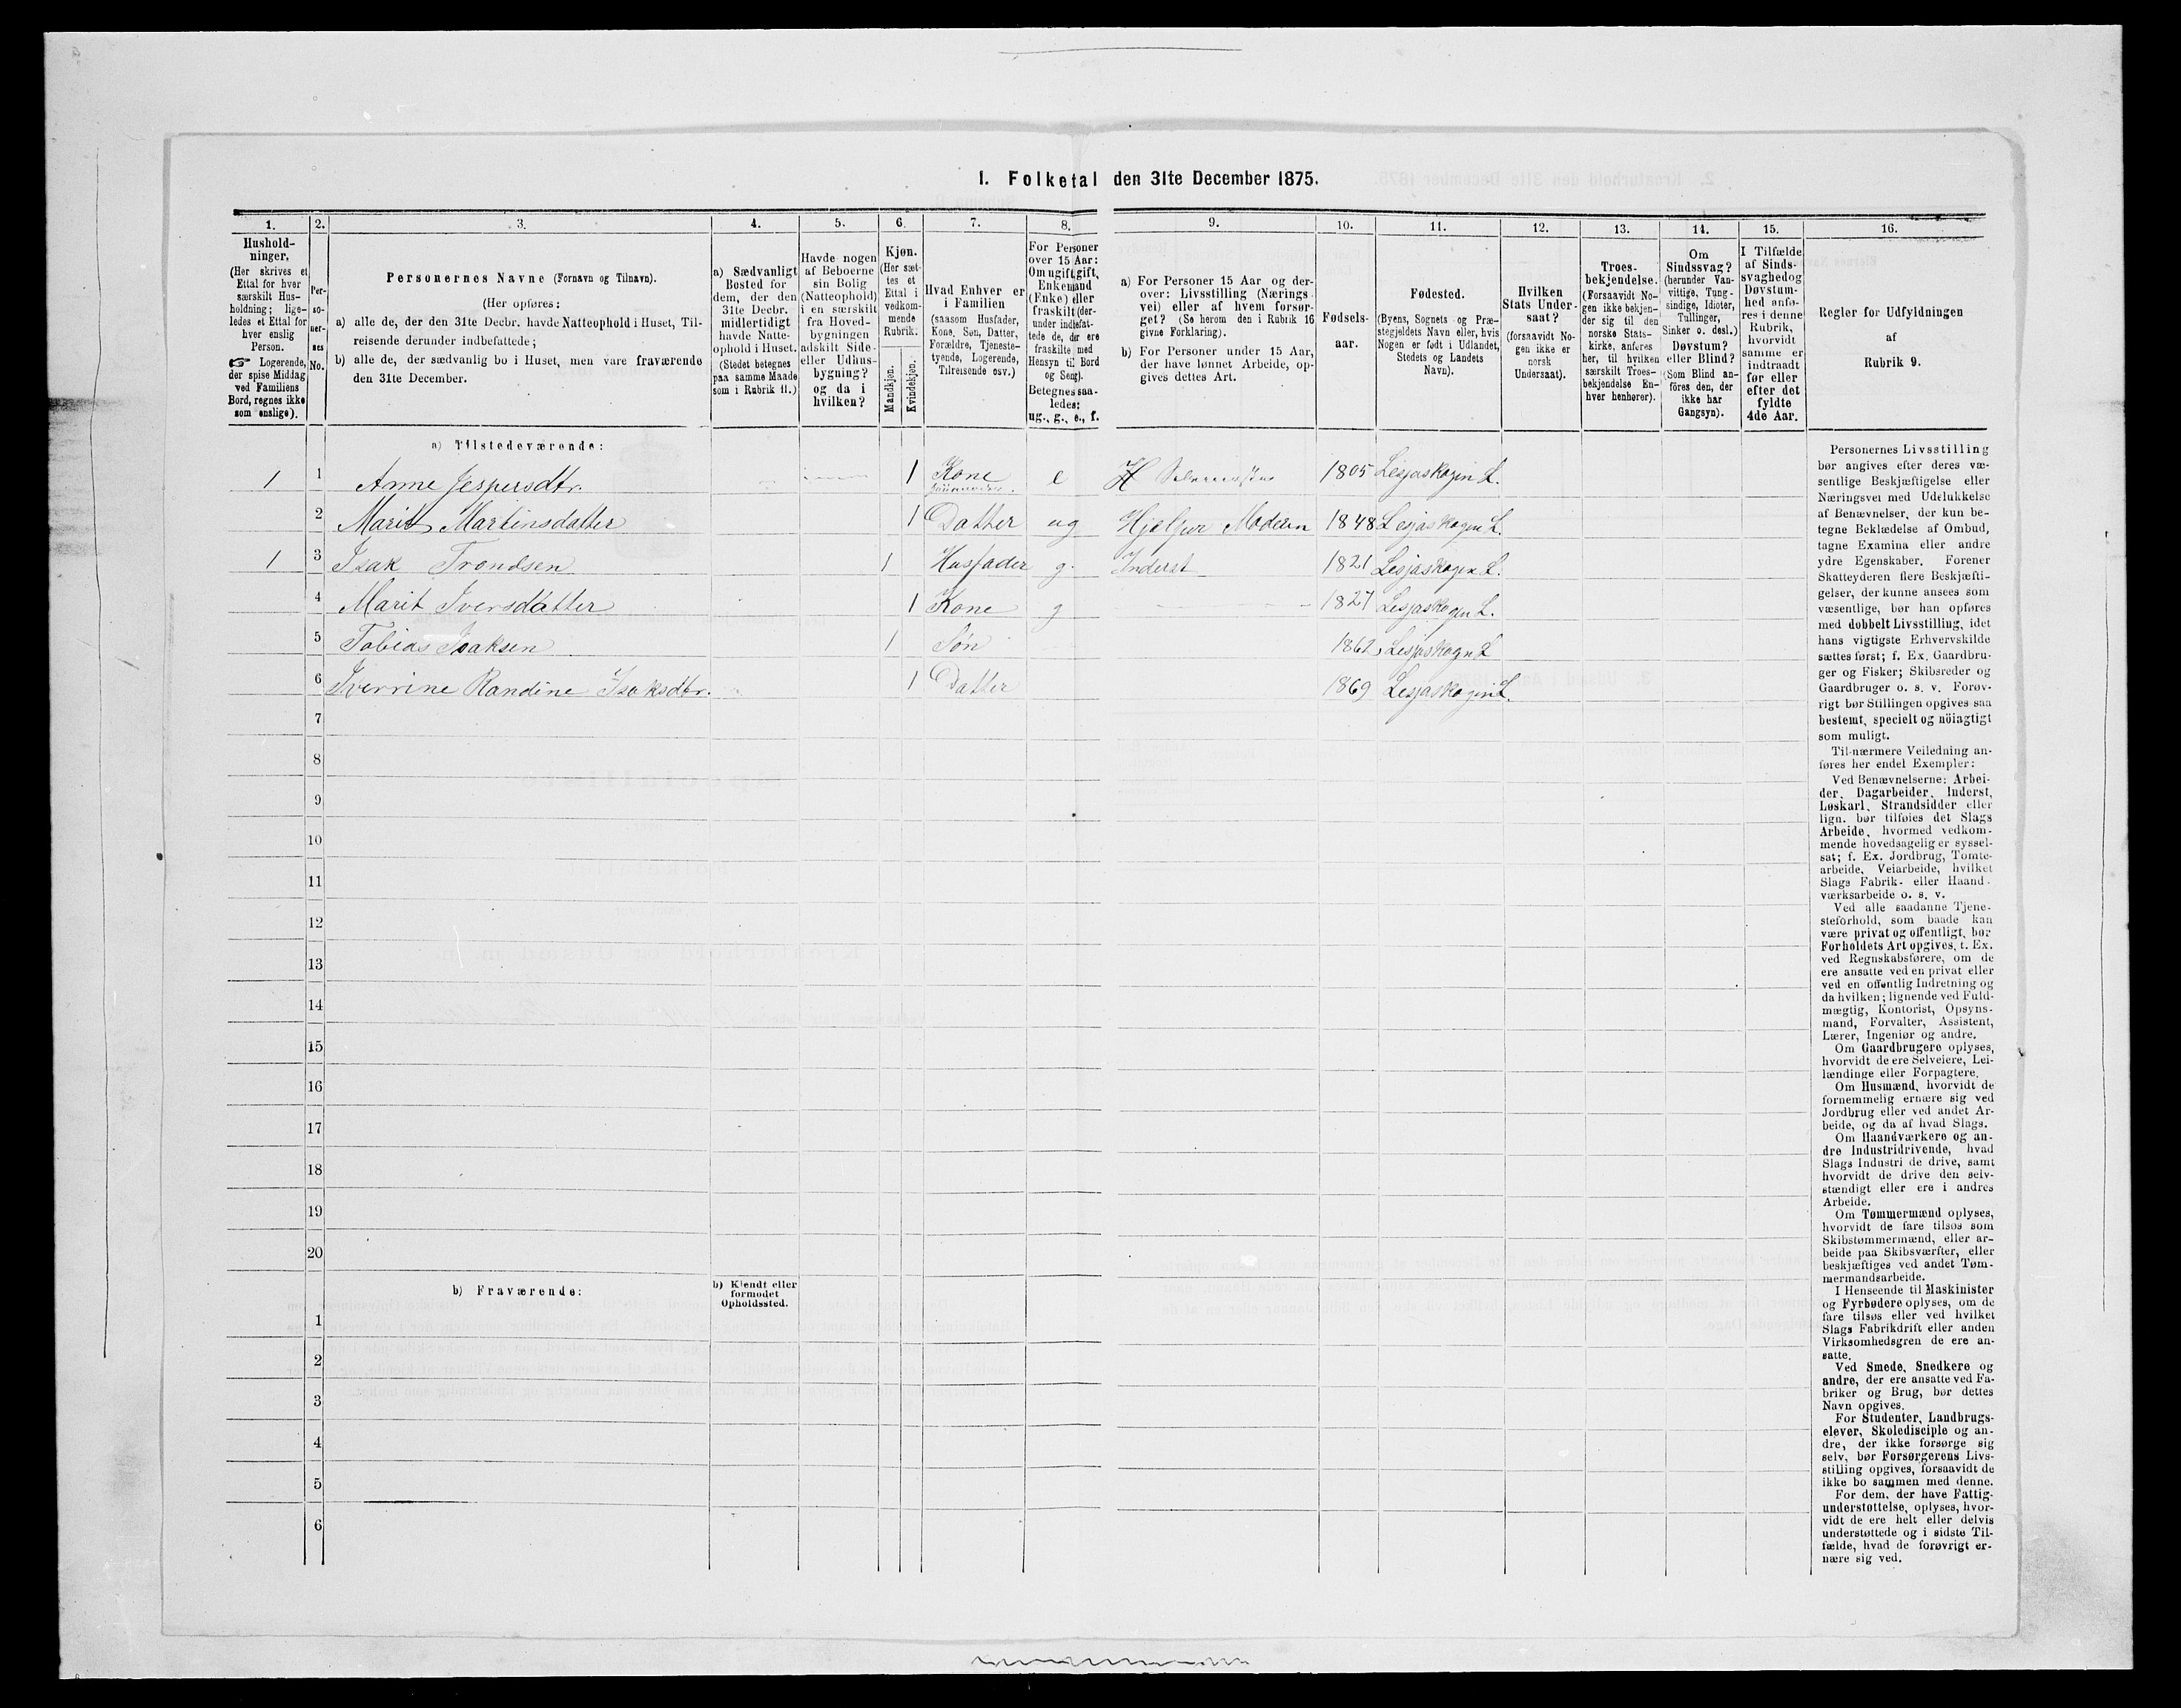 I. Folketal den 31te December 1875.
1.
Hushold-
ninger.
(Her skrives et
Ettal for hver
særskilt Hus-
holdning; lige-
ledes et Ettal for
hver enslig
Person.
☞ Logerende,
der spise Middag
ved Familiens
Bord, regnes ikke
som enslige).
2.
Per-
so-
ner-
nes
No.
3.
Personernes Navne (Fornavn og Tilnavn).
(Her opføres:
a) alle de, der den 31te Decbr. havde Natteophold i Huset, Til-
reisende derunder indbefattede;
b) alle de, der sædvanlig bo i Huset, men vare fraværende
den 31te December.
4.
a) Sædvanligt
Bosted for
dem, der den
31te Decbr.
midlertidigt
havde Natte-
ophold i Huset.
(Stedet betegnes
paa samme Maade
som i Rubrik 11.)
5.
Havde nogen
af Beboerne
sin Bolig
(Natteophold)
i en særskilt
fra Hoved-
bygningen
adskilt Side-
eller Udhus-
bygning?
og da i
hvilken?
6.
Kjøn.
(Her sæt-
tes et
Ettal i
vedkom-
mende
Rubrik.
Mandkjøn.
Kvindekjøn.
7.
Hvad Enhver er
i Familien
(saasom Husfader,
Kone, Søn, Datter,
Forældre, Tjeneste-
tyende, Logerende,
Tilreisende osv.)
8.
For Personer
over 15 Aar:
Om ugift, gift,
Enkemand
(Enke) eller
fraskilt (der-
under indbefat-
tede de, der ere
fraskilte med
Hensyn til Bord
og Seng).
Betegnes saa-
ledes:
ug., g., e., f.
9.
a) For Personer 15 Aar og der-
over: Livsstilling (Nærings-
vei) eller af hvem forsør-
get? (Se herom den i Rubrik 16
givne Forklaring).
b) For Personer under 15 Aar,
der have lønnet Arbeide, op-
gives dettes Art.
10.
Fødsels-
aar.
11.
Fødested.
(Byens, Sognets og Præ-
stegjeldets Navn eller, hvis
Nogen er født i Udlandet,
Stedets og Landets
Navn).
12.
Hvilken
Stats Under-
saat?
(forsaavidt No-
gen ikke er
norsk
Undersaat).
13.
Troes-
bekjendelse.
(Forsaavidt No-
gen ikke bekjen-
der sig til den
norske Stats-
kirke, anføres
her, til hvilken
særskilt Troes-
bekjendelse En-
hver henhører).
14.
Om
Sindssvag?
(herunder Van-
vittige, Tung-
sindige, Idioter,
Tullinger,
Sinker o. desl.)
Døvstum?
eller Blind?
(Som Blind an-
føres den, der
ikke har
Gangsyn).
15.
I Tilfælde
af Sinds-
svaghed og
Døvstum-
hed anfø-
res i denne
Rubrik,
hvorvidt
samme er
indtraadt
før eller
efter det
fyldte
4de Aar.
16.
Regler for Udfyldningen
af
Rubrik 9.
a) Tilstedeværende:
1 1 Anne Jespersdtr. 1 Kone e 1805 Lesjaskogen L.
2 Marit Martinsdatter 1 Datter ug Hjælper Moderen 1848 Lesjaskogen L.
1 3 Isak Trondsen 1 Husfader g. Inderst 1821 Lesjaskogen L.
4 Marit Iversdatter 1 Kone g 1827 Lesjaskogen L.
5 Tobias Isaksen 1 Søn 1862 Lesjaskogn L
6 Iverrine Randine Isaksdtr. 1 Datter 1869 Lesjaskogen L.
7
8
9
10
11
12
13
14
15
16
17
18
19
20
b) Fraværende:
b) Kjendt eller
formodet
Opholdssted.
1
2
3
4
5
6
Personernes Livsstilling
bør angives efter deres væ-
sentlige Beskjæftigelse eller
Næringsvei med Udelukkelse
af Benævnelser, der kun be-
tegne Beklædelse af Ombud,
tagne Examina eller andre
ydre Egenskaber. Forener
Skatteyderen flere Beskjæfti-
gelser, der kunne ansees som
væsentlige, bør han opføres
med dobbelt Livsstilling, idet
hans vigtigste Erhvervskilde
sættes først; f. Ex. Gaardbru-
ger og Fisker; Skibsreder og
Gaardbruger o. s. v. Forøv-
rigt bør Stillingen opgives saa
bestemt, specielt og nöiagtigt
som muligt.
Til nærmere Veiledning an-
føres her endel Exempler:
Ved Benævnelserne: Arbei-
der, Dagarbeider, Inderst,
Løskarl, Strandsidder eller
lign. bør tilføies det Slags
Arbeide, hvormed vedkom-
mende hovedsagelig er syssel-
sat; f. Ex. Jordbrug, Tomte-
arbeide, Veiarbeide, hvilket
Slags Fabrik- eller Haand-
værksarbeide o. s. v.
Ved alle saadanne Tjene-
steforhold, som baade kan
være privat og offentligt, bør
Forholdets Art opgives, t. Ex.
ved Regnskabsførere, om de
ere ansatte ved en privat eller
ved en offentlig Indretning og
da hvilken; lignende ved Fuld-
mægtig, Kontorist, Opsyns-
mand, Forvalter, Assistent,
Lærer, Ingeniør og andre.
Om Gaardbrugere oplyses,
hvorvidt de ere Selveiere, Lei-
lændinge eller Forpagtere.
Om Husmænd, hvorvidt de
fornemmelig ernære sig ved
Jordbrug eller ved andet Ar-
beide, og da af hvad Slags.
Om Haandværkere og an-
dre Industridrivende, hvad
Slags Industri de drive, samt
hvorvidt de drive den selv-
stændigt eller ere i andres
Arbeide.
Om Tømmermænd oplyses,
hvorvidt de fare tilsøs som
Skibstømmermænd, eller ar-
beide paa Skibsværfter, eller
beskjæftiges ved andet Tøm-
mermandsarbeide.
I Henseende til Maskinister
og Fyrbødere oplyses, om de
fare tilsøs eller ved hvilket
Slags Fabrikdrift eller anden
Virksomhedsgren de ere an-
satte.
Ved Smede, Snedkere og
andre, der ere ansatte ved Fa-
briker og Brug, bør dettes
Navn opgives.
For Studenter, Landbrugs-
elever, Skoledisciple og an-
dre, der ikke forsørge sig
selv, bør Forsørgerens Livs-
stilling opgives, forsaavidt de
ikke bo sammen med denne.
For dem, der have Fattig-
understøttelse, oplyses, hvor-
vidt de ere helt eller delvis
understøttede og i sidste Til-
fælde, hvad de forøvrigt er-
nære sig ved.